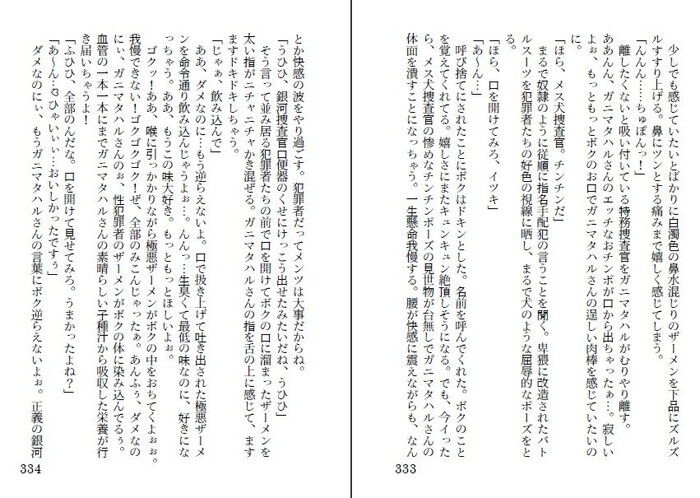 少しでも感じていたいとばかりに白濁色の鼻水混じりのザーメンを下品にズルズ
ルすすり上げる。鼻にツンとする痛みまで嬉しく感じてしまう。
「んんん……ちゅぽんっ！」
離したくないと吸い付いている特務捜査官をガニマタハルがむりやり離す。
ああんん、ガニマタハルさんのエッチなおチンポが口から出ちゃったぁ…。寂しい
よぉ、もっともっとボクのお口でガニマタハルさんの逞しい肉棒を感じていたいの
「ほら、メス犬捜査官。チンチンだ」
まるで奴隷のように従順に指名手配犯の言うことを聞く。卑猥に改造されたバト
ルスーツを犯罪者たちの好色の視線に晒し、まるで犬のような屈辱的なポーズをと
る。
「ほら、口を開けてみろ、イツキ」
「あ～ん…」
呼び捨てにされたことにボクはドキンとした。名前を呼んでくれた。ボクのこと
を覚えてくれてる。嬉しさにまたキュンキュン絶頂しそうになる。でも、今イった
ら、メス犬捜査官の惨めなチンチンポーズの見世物が台無しでガニマタハルさんの
体面を潰すことになっちゃう。一生懸命我慢する。腰が快感に震えながらも、なん
333
とか快感の波をやり過ごす。犯罪者だってメンツは大事だからね。
「うひひ、銀河捜査官口便器のくせにけっこう出せたみたいだね、うひひ」
そう言って並み居る犯罪者たちの前で口を開けてボクの口に溜まったザーメンを
太い指がニチャニチャかき混ぜる。ガニマタハルさんの指を舌の上に感じて、ます
ますドキドキしちゃう。
「じゃぁ、飲み込んで」
ああ、ダメなのに…もう逆らえないよ。口で扱き上げて吐き出された極悪ザーメ
ンを命令通り飲み込んじゃうよぉ…。んんっ…生臭くて最低の味なのに、好きにな
っちゃう。ああ、もうこの味大好き。もっともっとほしいよぉ。
ゴクッ！ああ、喉に引っかかりながら極悪ザーメンがボクの中をおちてくよぉぉ。
我慢できない！ゴクゴクゴク！ぜ、全部のみこんじゃったぁ。あんふぅ、ダメなの
にぃ、ガニマタハルさんのぉ、性犯罪者のザーメンがボクの体に染み込んでるぅ。
血管の一本一本にまでガニマタハルさんの素晴らしい子種汁から吸収した栄養が行
き届いちゃうよ！
「ふひひ、全部のんだな。口を開けて見せてみろ。うまかったよね？」
「あ～ん…♡ひゃいぃぃ…おいしかったですぅ」
ダメなのにぃ、もうガニマタハルさんの言葉にボク逆らえないよぉ。正義の銀河
334